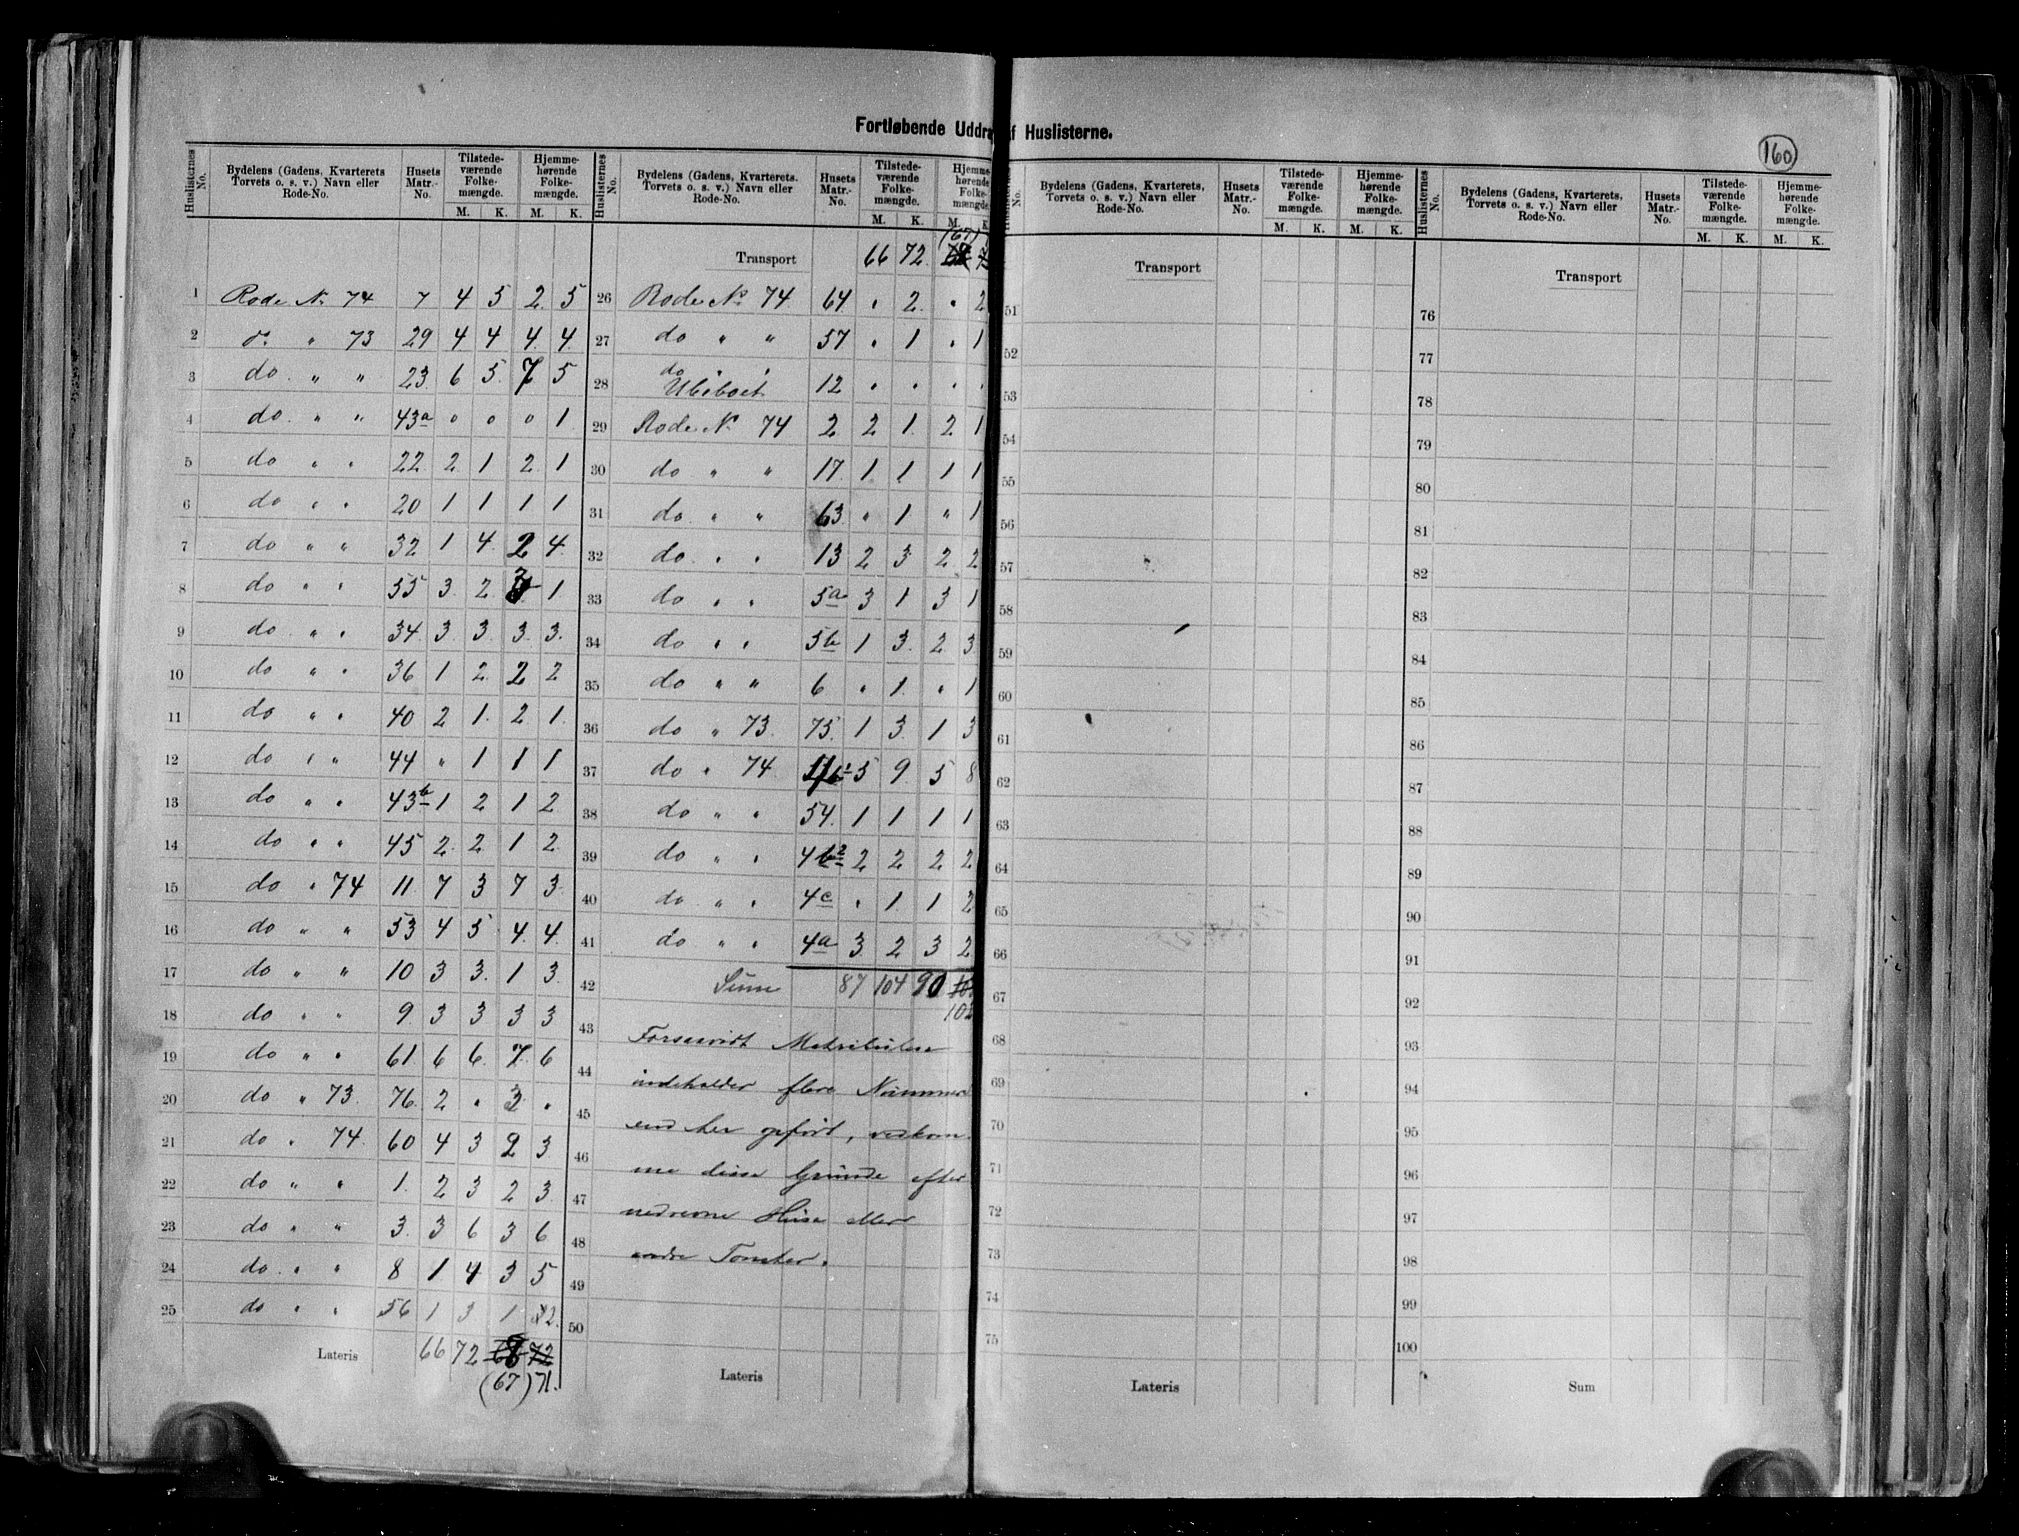 Fortløbende Uddr f Huslisterne.
160
Huslisternes No. | Bydelens (Gadens, Kvarterets Torvets o. s. v.) Navn eller Rode-No. | Husets Matr.-No. | Tilstedeværende Folkemængde. M. K. | Hjemmehørende Folkemængde. M. K.
1 Rode No. 74 7 4 5 2 5
2 do " 73 29 4 4 4 4
3 do " " 23 6 5 7 5
4 do " " 43a 0 0 0 1
5 do " " 22 2 1 2 1
6 do " " 20 1 1 1 1
7 do " " 32 1 4 2 4
8 do " " 55 3 2 3 1
9 do " " 34 3 3 3 3
10 do " " 36 1 2 2 2
11 do " " 40 2 1 2 1
12 do " " 44 " 1 1 1
13 do " " 43b 1 2 1 2
14 do " " 45 2 2 1 2
15 do " 74 11 7 3 7 3
16 do " " 53 4 5 4 4
17 do " " 10 3 3 1 3
18 do " " 9 3 3 3 3
19 do " " 61 6 6 7 6
20 do " 73 76 2 " 3 "
21 do " 74 60 4 3 2 3
22 do " " 1 2 3 2 3
23 do " " 3 3 6 3 6
24 do " " 8 1 4 3 5
25 do " " 56 1 3 1 2
Lateris 66 72 68 72
(67) 71.
Huslisternes No. | Bydelens (Gadens, Kvarterets Torvets o. s. v.) Navn eller Rode-No. | Husets Matr.-No. | Tilstedeværende Folkemængde. M. K. | Hjemmehørende Folkemængde. M. K.
(67)
Transport 66 72 68
26 Rode No 74 64 " 2 " 2
27 do " " 57 " 1 " 1
28 do " " Ubeboet 12 " " " "
29 Rode No 74 2 2 1 2 1
30 do " " 17 1 1 1 1
31 do " " 63 " 1 " 1
32 do " " 13 2 3 2 2
33 do " " 5a 3 1 3 1
34 do " " 5b 1 3 2 3
35 do " " 6 " 1 " 1
36 do " 73 75 1 3 1 3
37 do " 74 5 9 5 8
38 do " " 54 1 1 1 1
39 do " " 4b2 2 2 2 2
40 do " " 4c " 1 1 2
41 do " " 4a 3 2 3 2
42 Sum 87 104 90
43 Forsaavidt Matrikulen
44 indeholder flere Nummer
45 end her opført, vedkom
46 me disse Grunde efter
47 nedrevne Huse eller
48 andre Tomter.
49
50
Lateris
Huslisternes No. | Bydelens (Gadens, Kvarterets, Torvets o. s. v.) Navn eller Rode-No. | Husets Matr.-No. | Tilstedeværende Folkemængde. M. K. | Hjemmehørende Folkemængde. M. K.
Transport
51
52
53
54
55
56
57
58
59
60
61
62
63
64
65
66
67
68
69
70
71
72
73
74
75
Lateris
Huslisternes No. | Bydelens (Gadens, Kvarterets, Torvets o. s. v.) Navn eller Rode-No. | Husets Matr.-No. | Tilstedeværende Folkemængde. M. K. | Hjemmehørende Folkemængde. M. K.
Transport
76
77
78
79
80
81
82
83
84
85
86
87
88
89
90
91
92
93
94
95
96
97
98
99
100
Sum